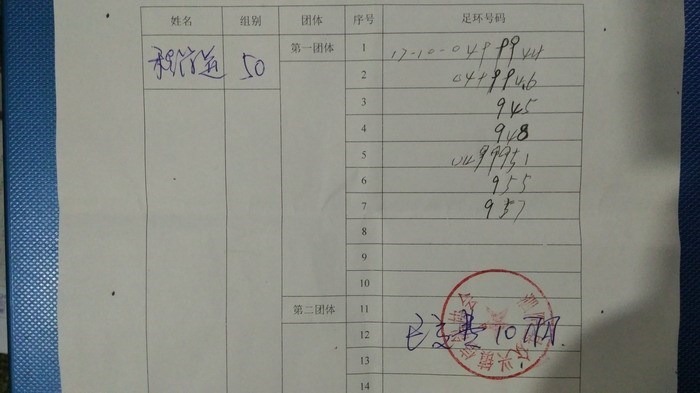 姓名 组别 团体 序号 足环号码
50 第一团体 1 17-10-0499944
2 0499946
3 945
4 948
5 0499951
6 955
7 957
8
9
10
第二团体 11
12 已交费10
13
14